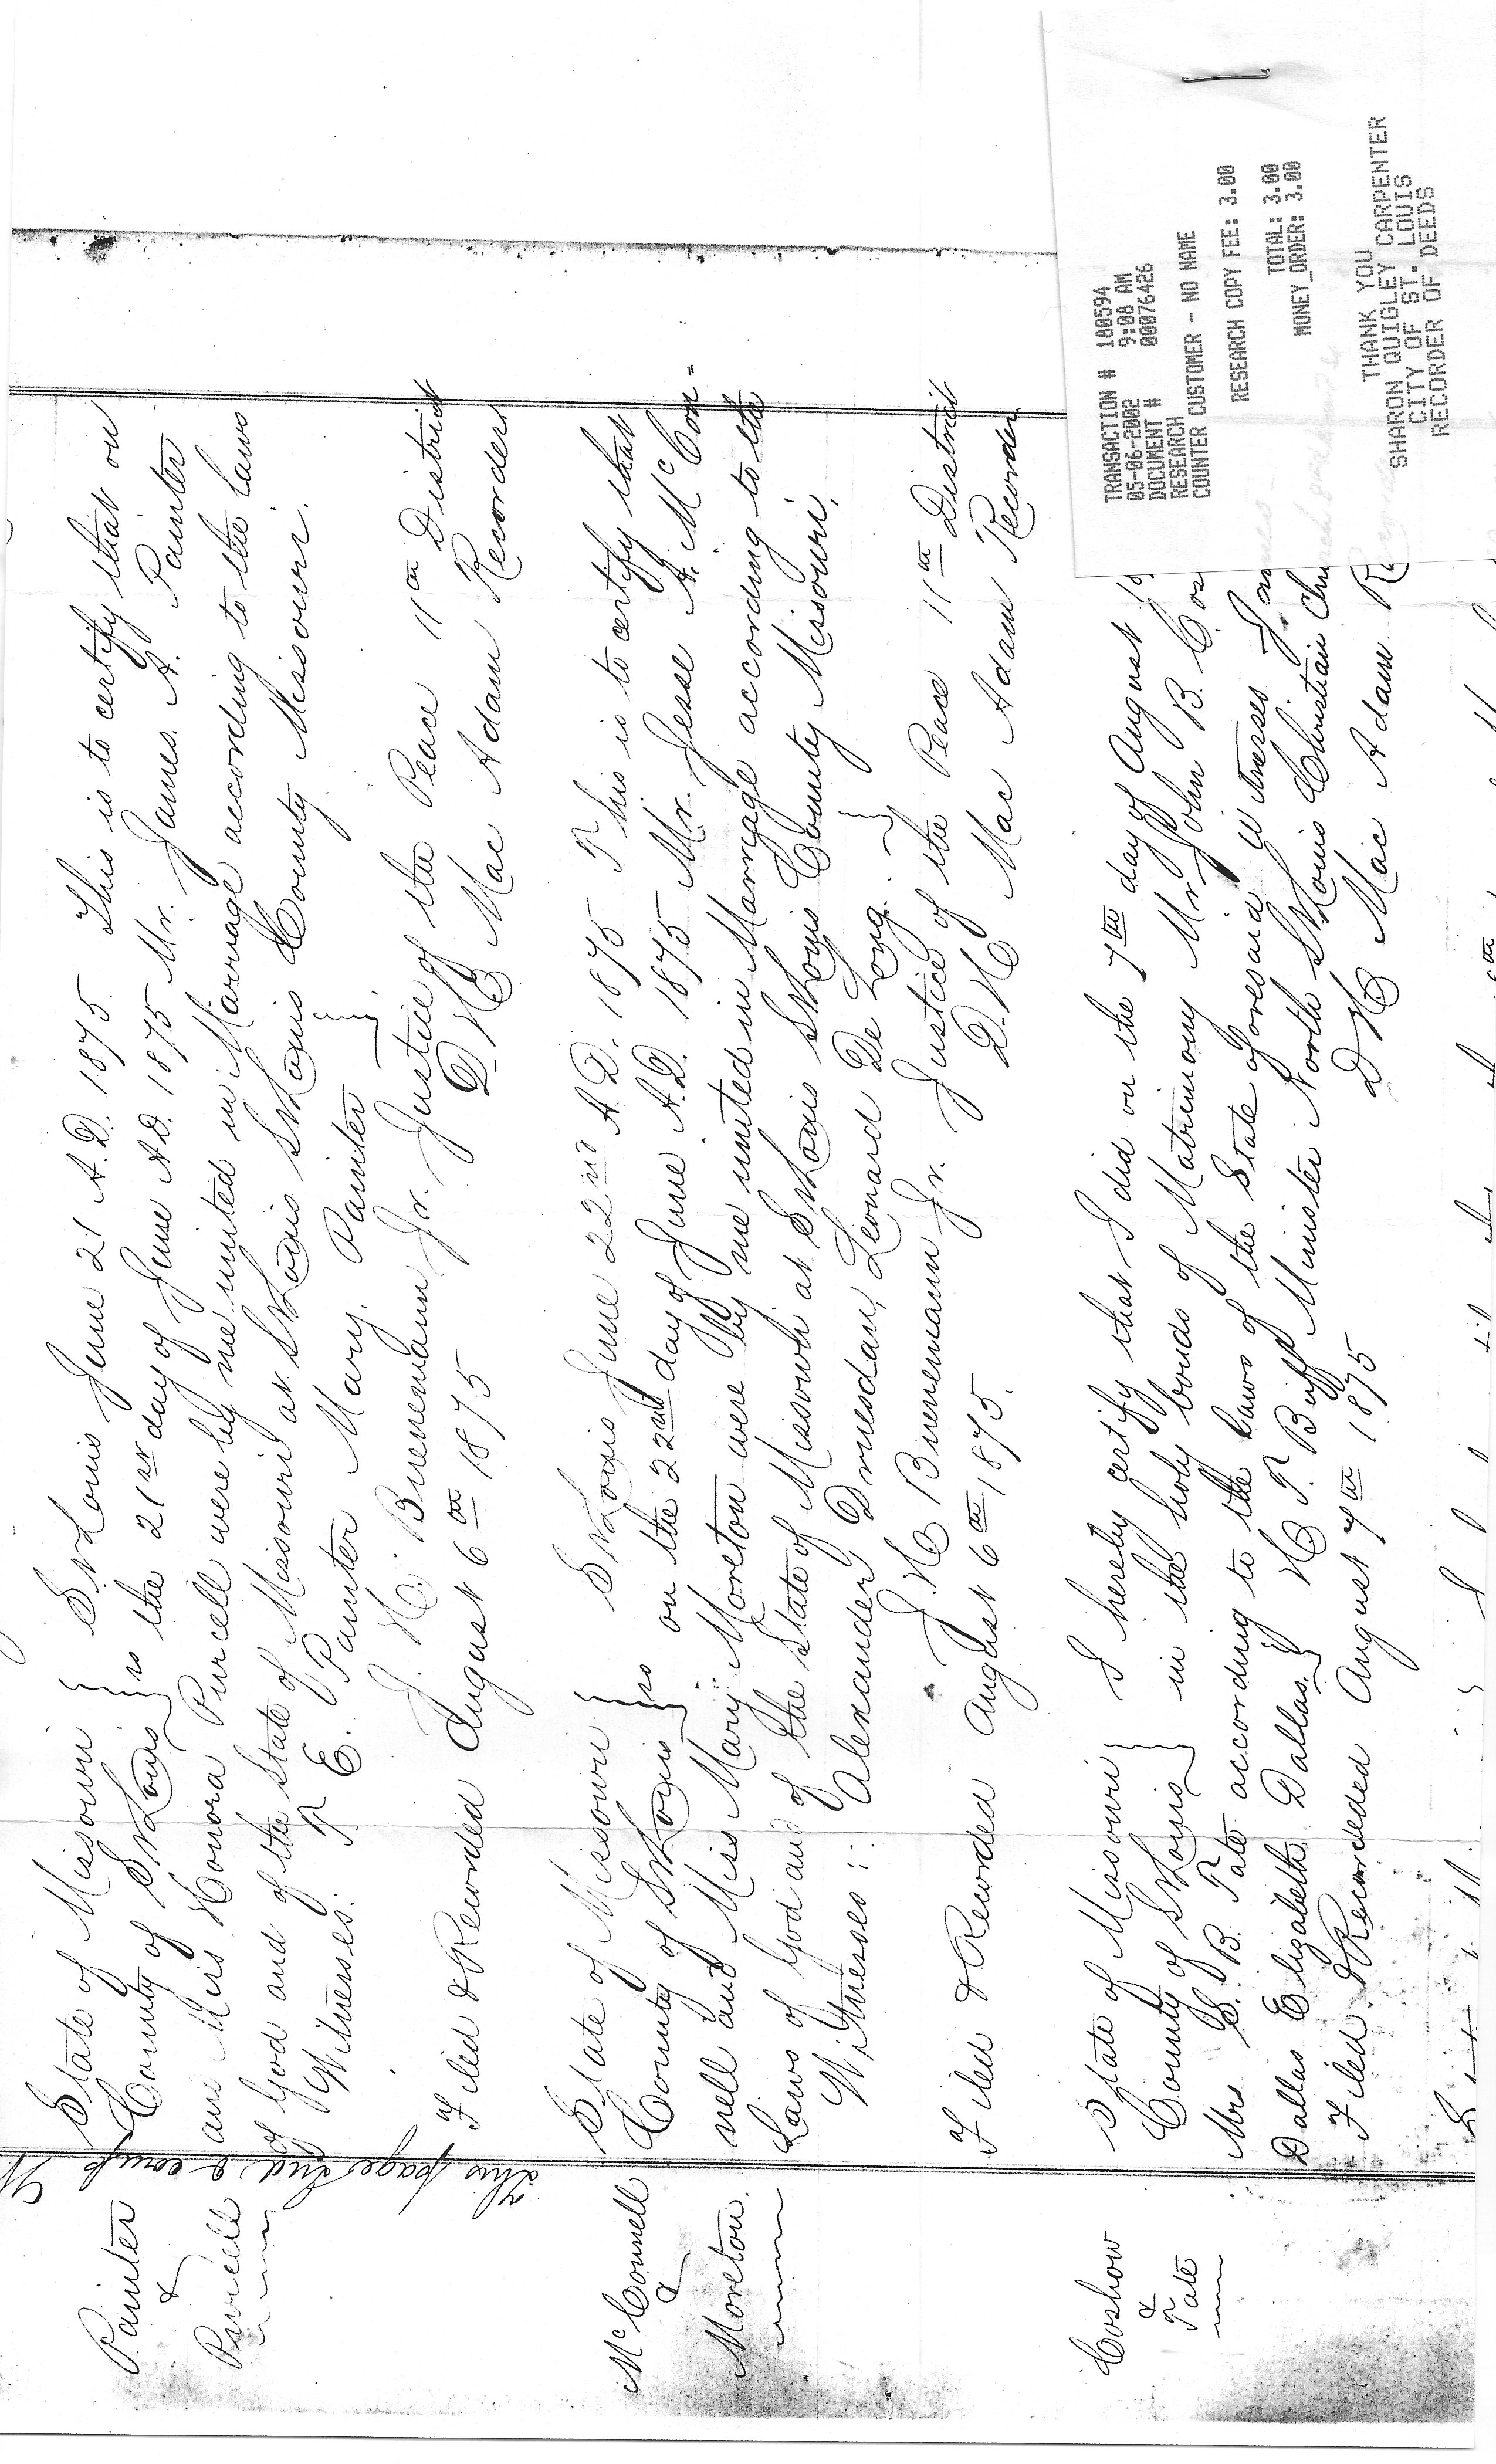 Painter
&
Purcell
State of Missouri } St Louis June 21 A.D. 1875. This is to certify that on
County of St Louis } ss the 21st day of June A.D. 1875 Mr. James. A. Painter
and Miss Honora Purcell were by me united in Marriage according to the laws
of God and of the State of Missouri at St Louis St Louis County Missouri.
Witnesses: T. E. Painter Mary. Painter }
J. H. Buenemann Jr. Justice of the Peace 11th District
Filed & Recorded August 6th 1875 D. H. Mac Adam Recorder
this page and
McConnell
&
Moreton
State of Missouri } St Louis June 22nd A.D. 1875 This is to certify that
County of St Louis } ss on the 22nd day of June A.D. 1875 Mr. Jesse A. McCon=
nell and Miss Mary Moreton were by me united in Marriage according to the
Laws of God and of the State of Missouri at St Louis St Louis County Missouri.
Witnesses :: Alexander Leonard De Long. }
J. H. Buenemann Jr. Justice of the Peace 11th District
Filed & Recorded August 6th 1875. D. H. Mac Adam Recorder
Coshow
&
Tate
State of Missouri } I hereby certify that I did on the 7th day of August 18
County of St Louis } in the holy bonds of Matrimony Mr. John B. Cos
Mrs S. B. Tate according to the Laws of the State aforesaid witnesses
Dallas Elizabeth Dallas. } Minister North St Louis Christian Chu
Filed & Recorded August 7th 1875 D. H. Mac Adam Re
TRANSACTION # 180594
05-06-2002 9:08 AM
DOCUMENT # 00076426
RESEARCH
COUNTER CUSTOMER - NO NAME
RESEARCH COPY FEE: 3.00
TOTAL: 3.00
MONEY_ORDER: 3.00
THANK YOU
SHARON QUIGLEY CARPENTER
CITY OF ST. LOUIS
RECORDER OF DEEDS